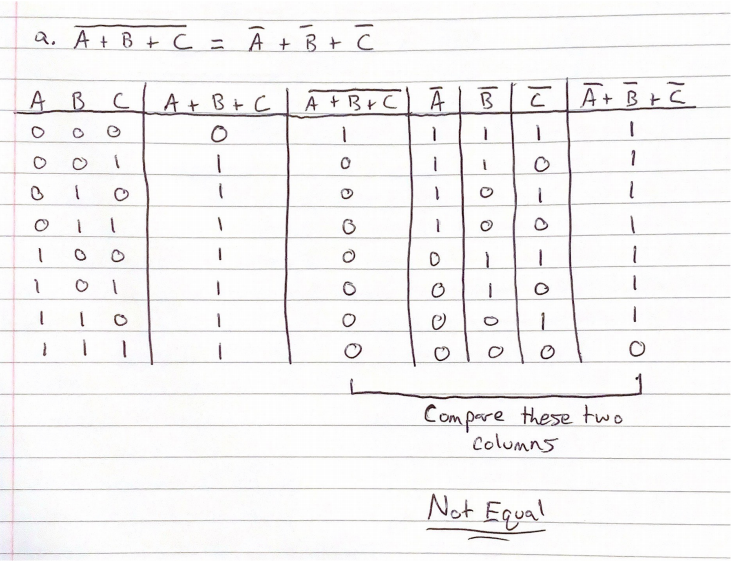 a. \overline{A + B + C} = \overline{A} + \overline{B} + \overline{C}
A B C | A + B + C | \overline{A + B + C} | \overline{A} | \overline{B} | \overline{C} | \overline{A} + \overline{B} + \overline{C}
0 0 0 | 0 | 1 | 1 | 1 | 1 | 1
0 0 1 | 1 | 0 | 1 | 1 | 0 | 1
0 1 0 | 1 | 0 | 1 | 0 | 1 | 1
0 1 1 | 1 | 0 | 1 | 0 | 0 | 1
1 0 0 | 1 | 0 | 0 | 1 | 1 | 1
1 0 1 | 1 | 0 | 0 | 1 | 0 | 1
1 1 0 | 1 | 0 | 0 | 0 | 1 | 1
1 1 1 | 1 | 0 | 0 | 0 | 0 | 0
Compare these two
columns
Not Equal